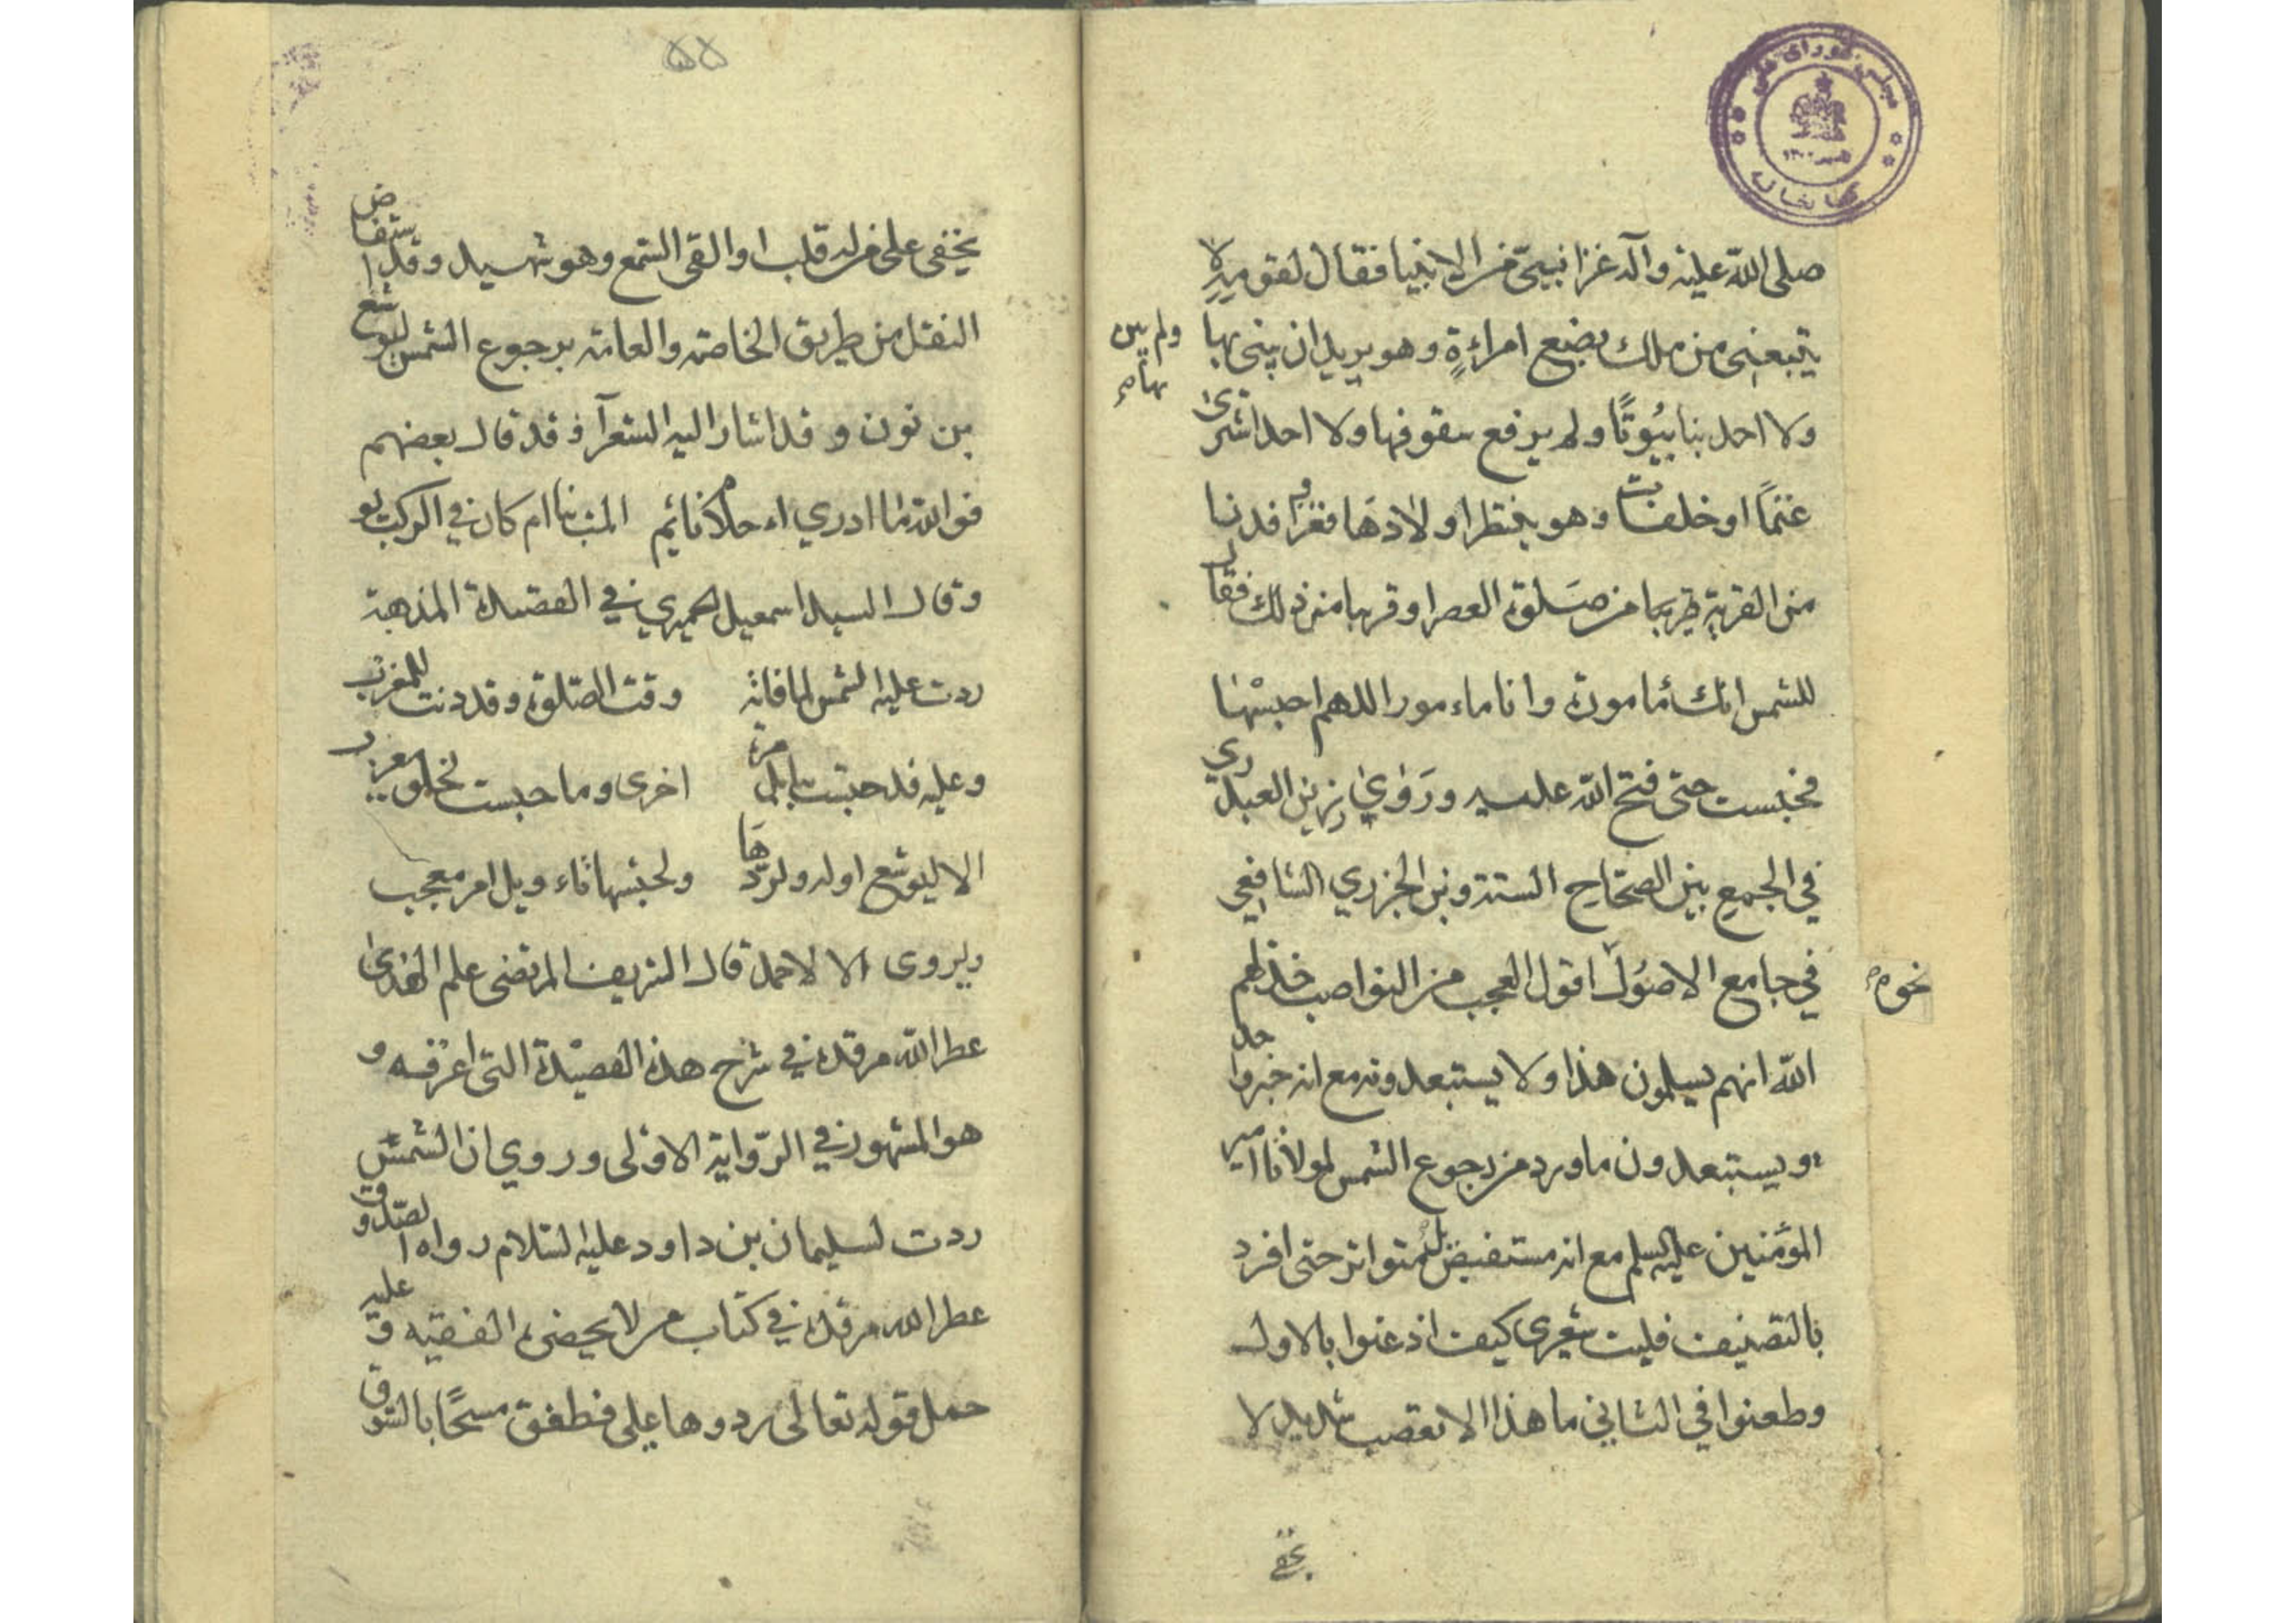 صلى الله عليه وآله غزا نبيّ من الانبيا فقال لقومه لا
يتبعنى من ملك بضع امراءةٍ وهو يريد ان يبنى بها
ولم يبن بها
ولا احد بنا بيُوتًا ولم يرفع سقوفها ولا احد اشترى
غنمًا او خلفات وهو ينتظر اولادهَا فغزا فدنا
من القرية قريبا من صَلوة العصر او قريبا من ذلك فقال
للشمس انك مأمورة وانا ماءمور اللهم احبسْها
فحبست حتى فتح الله عليه ورَوٰى رزين العبدري
في الجمع بين الصحاح الستة وبن الجزري الشافعي
في جامع الاصُول اقول العجب من النواصب خذلهم
نحوه
الله انهم يسلمون هذا ولا يستبعدونه مع انه خبر واحد
ويستبعدون ما ورد من رجوع الشمس لمولانا امير
المؤمنين عليه السلم مع انه مستفيض بل متواتر حتى افرد
بالتصنيف فليت شعري كيف اذعنوا بالاول
وطعنوا في الثاني ما هذا الا تعصب شديد لا
يخفى
۵۵
يخفى على من له قلب او القى السّمع وهو شهيد وقد استفاض
النقل من طريق الخاصة والعامة برجوع الشمس ليوشع
بن نون وقد اشار اليه الشعرآء فقد قال بعضهم
فوالله ما ادري اء حلام نائم المت بنا ام كان في الركب يوشع
وقال السيد اسمعيل الحميري في القصيدة المذهبة
ردت عليه الشمس لما فاته وقت الصّلوة وقد دنت للمغرب
وعليه قد حبست ببابل مرة اخرى وما حبست لخلق معرب
الا ليوشع اوله ولردّها ولحبسها تاءويل امر معجب
ويروى الا لاحمد قال الشريف المرتضى علم الهدىٰ
عطر الله مرقده في شرح هذه القصيْدة التى اعرفه و
هو المشهور في الرّواية الاولى وروي ان الشمس
ردت لسليمان بن داود عليه السّلام رواه الصّدوق
عطر الله مرقده في كتاب من لا يحضره الفقيه وعليه
حمل قوله تعالى ردوها علي فطفق مسحًا بالسّوق